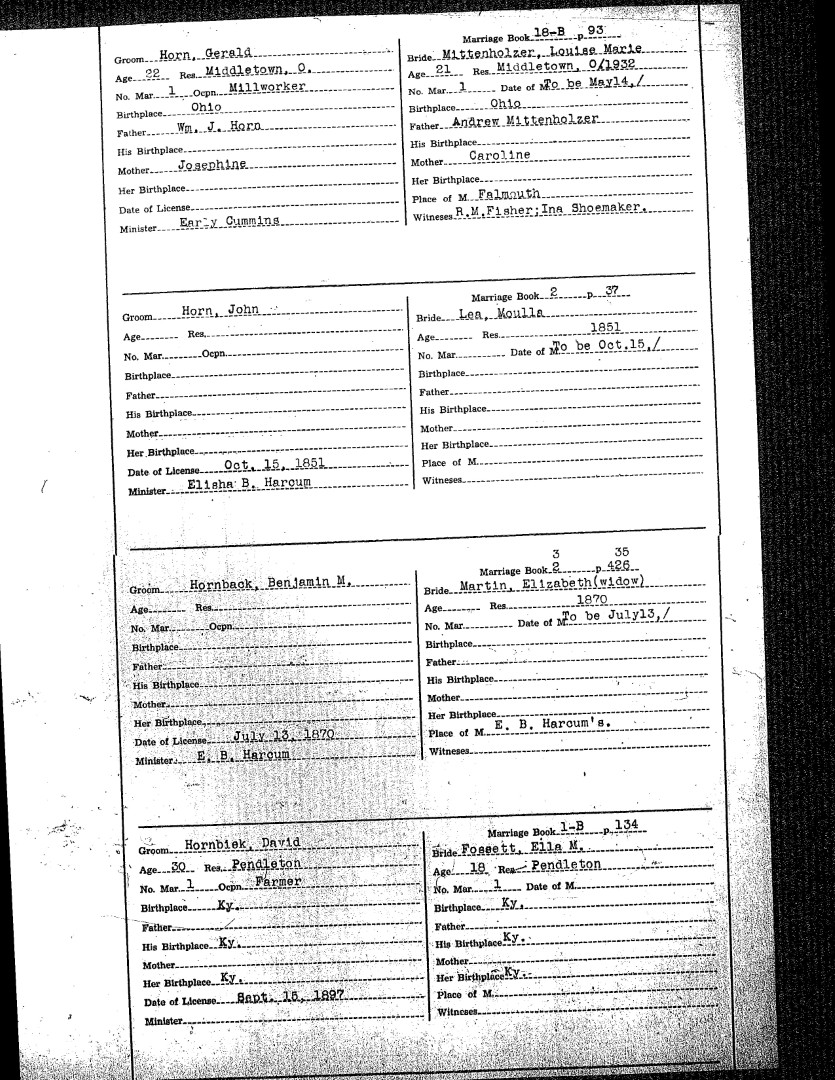 Marriage Book 18-B p. 93
Groom Horn, Gerald
Age 22 Res. Middletown, O.
No. Mar. 1 Ocpn. Millworker
Birthplace Ohio
Father Wm. J. Horn
His Birthplace
Mother Josephine
Her Birthplace
Date of License
Minister Early Cummins
Bride Mittenholzer, Louise Marie
Age 21 Res. Middletown, O/1932
No. Mar. 1 Date of M. To be May14,/
Birthplace Ohio
Father Andrew Mittenholzer
His Birthplace
Mother Caroline
Her Birthplace
Place of M. Falmouth
Witneses R.M.Fisher;Ina Shoemaker.
Marriage Book 2 p. 37
Groom Horn, John
Age Res.
No. Mar. Ocpn.
Birthplace
Father
His Birthplace
Mother
Her Birthplace
Date of License Oct. 15, 1851
Minister Elisha B. Harcum
Bride Lea, Moulla
Age Res. 1851
No. Mar. Date of M. To be Oct.15,/
Birthplace
Father
His Birthplace
Mother
Her Birthplace
Place of M.
Witneses
3 35
Marriage Book 2 p. 426
Groom Hornback, Benjamin M.
Age Res.
No. Mar. Ocpn.
Birthplace
Father
His Birthplace
Mother
Her Birthplace
Date of License July 13, 1870
Minister E. B. Harcum
Bride Martin, Elizabeth(widow)
Age Res. 1870
No. Mar. Date of M. To be July13,/
Birthplace
Father
His Birthplace
Mother
Her Birthplace
Place of M. E. B. Harcum's.
Witneses
Marriage Book 1-B p. 134
Groom Hornbiek, David
Age 30 Res. Pendleton
No. Mar. 1 Ocpn. Farmer
Birthplace Ky.
Father
His Birthplace Ky.
Mother
Her Birthplace Ky.
Date of License Sept. 15, 1897
Minister
Bride Fossett, Ella M.
Age 18 Res. Pendleton
No. Mar. 1 Date of M.
Birthplace Ky.
Father
His Birthplace Ky.
Mother
Her Birthplace Ky.
Place of M.
Witneses